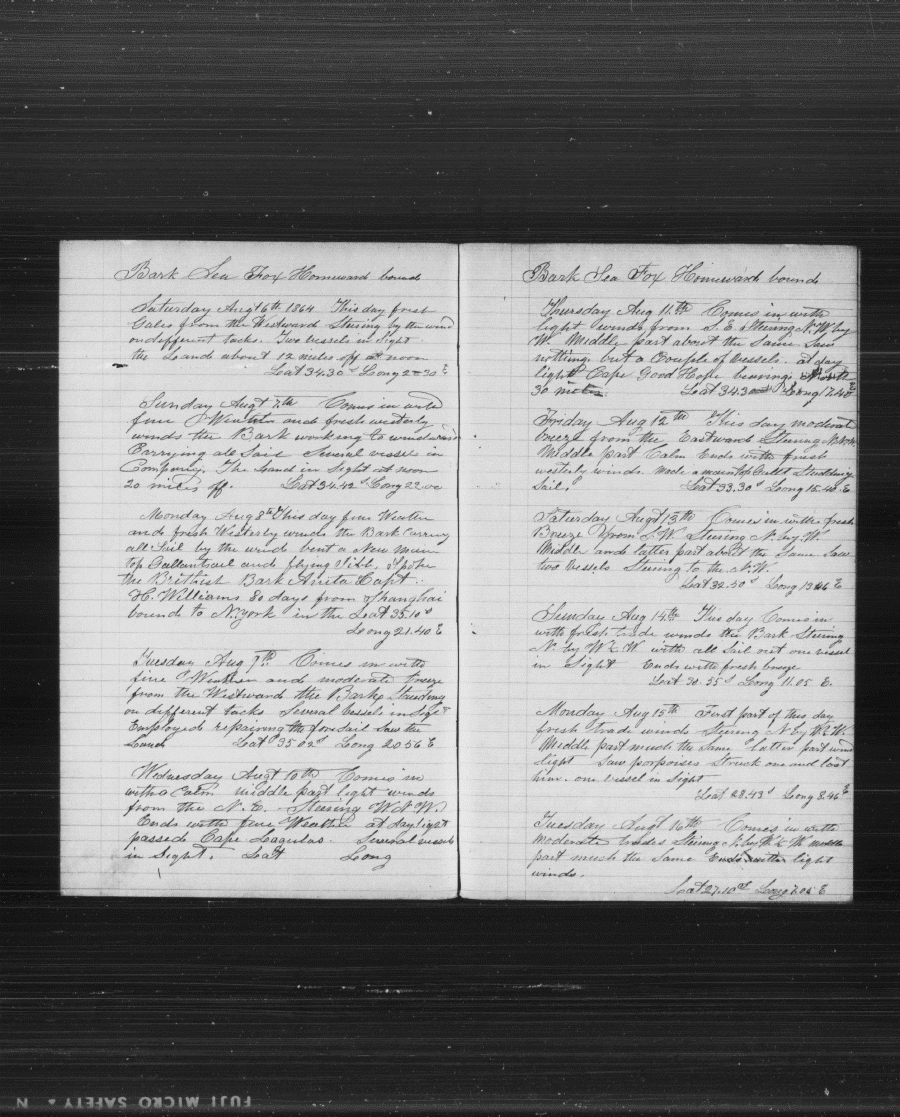 Bark Sea Fox Homeward bound
Saturday Augt 6th 1864 This day fresh
Gales from the Westward Stering by the wind
on different tacks. Two vessels in sight.
the Leand about 12 miles off at noon
Lat 34.30 S Long 2 30 E
Sunday Augt 7th Comes in with
fine Weather and fresh westerly
winds the Bark working to windward
Carrying all Sail Several vessels in
Company. The Land in Sight at noon
20 miles off. Lat 34.42 S Long 22.00
Monday Aug 8th This day fine Weather
and fresh Westerly winds the Bark Carring
all Sail by the wind bent a New Main
top Gallantsail and flying Jibb. Spoke
the Brithist Bark Anita Capt.
H. Williams 80 days from Shanghai
bound to N.York in the Lat 35.10 S
Long 21.40 E
Tuesday Aug 9th Comes in with
fine Weather and moderate breeze
from the Westward the Barke Standing
on different tacks Several vessels in Sight
Employed repairing the foresail Saw the
Land Lat 35.02 S Long 20.56 E
Wednesday Augt 10th Comes in
with a Calm middle part light winds
from the N.E. Steering W N W.
Ends with fine Weather at daylight
passed Cape Lagulas. Several vessels
in Sight. Lat Long
Bark Sea Fox Homeward bound
Thursday Aug 11th Comes in with
light winds from S.E. Stering N.W. by
W. Middle part about the Same Saw
nothing but a Couple of vessels. at day
light Cape Good Hope bearing
30 miles Lat 34.30 Long 17.40 E
Friday Aug 12th This day moderate
breeze from the Eastward Steering
Middle part Calm Ends with fresh
westerly winds made a maintop Gallt Studding
Sail. Lat 33.30 S Long 15.40 E
Saturday Augt 13th Comes in with fresh
Breeze from S.W. Stering N. by W.
Middle and latter part about the Same Saw
two vessels Stering to the N.W.
Lat 32.50 S Long 13 E
Sunday Aug 14th This day Comes in
with fresh trade winds the Bark Stering
N. by W ½ W with all Sail out one vessel
in Sight Ends with fresh breeze
Lat 30.55 S Long 11.05 E.
Monday Aug 15th First part of this day
fresh trade winds Stering N by W ½ W.
Meddle part much the Same Latter part wind
light Saw porpoises Struck one and lost
him. one vessel in Sight
Lat 28.43 S Long 8.46 E
Tuesday Augt 16th Comes in with
moderate trades Stering N. by W ½ W middle
part mush the Same Ends with light
winds.
Lat 27.10 S Long 7.05 E
FUJI MICRO SAFETY N